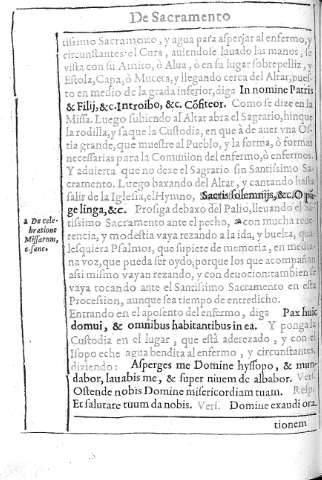 De Sacramento
tissimo Sacramento, y agua para asperjar al enfermo, y
circunstantes: el Cura, auiendose lauado las manos, se
vista con su Amito, ò Alua, ò en su lugar sobrepelliz, y
Estola, Capa, ò Muceta, y llegando cerca del Altar, pues-
to en medio de la grada inferior, diga In nomine Patris
& Filij, &c. Introibo, &c. Cõfiteor. Como se dize en la
Missa. Luego subiendo al Altar abra el Sagrario, hinque
la rodilla, y saque la Custodia, en que à de auer vna Os-
tia grande, que muestre al Pueblo, y la forma, ò formas
necessarias para la Comunion del enfermo, ò enfermos.
Y aduierta que no dexe el Sagrario sin Santissimo Sa-
cramento. Luego baxando del Altar, y cantando hasta
salir de la Iglesia, el Hymno, Sacris solemnijs, &c. O pã-
ge lingua, &c. Prosiga debaxo del Palio, lleuando el Sã-
tissimo Sacramento ante el pecho, a con mucha reue-
rencia, y modestia vaya rezando a la ida, y buelta, qua-
lesquiera Psalmos, que supiere de memoria, en media-
na voz, que pueda ser oydo, porque los que acompañan
assi mismo vayan rezando, y con deuocion: tambien se
vaya tocando ante el Santissimo Sacramento en esta
Procession, aunque sea tiempo de entredicho.
Entrando en el aposento del enfermo, diga Pax huic
domui, & omnibus habitantibus in ea. Y ponga la
Custodia en el lugar, que està aderezado, y con el
Isopo eche agua bendita al enfermo, y circunstantes,
diziendo: Asperges me Domine hyssopo, & mun-
dabor, lauabis me, & super niuem de albabor. Vers.
Ostende nobis Domine misericordiam tuam. Resp.
Et salutare tuum da nobis. Vers. Domine exaudi ora-
tionem
a De cele-
bratione
Missarum,
c. sane.